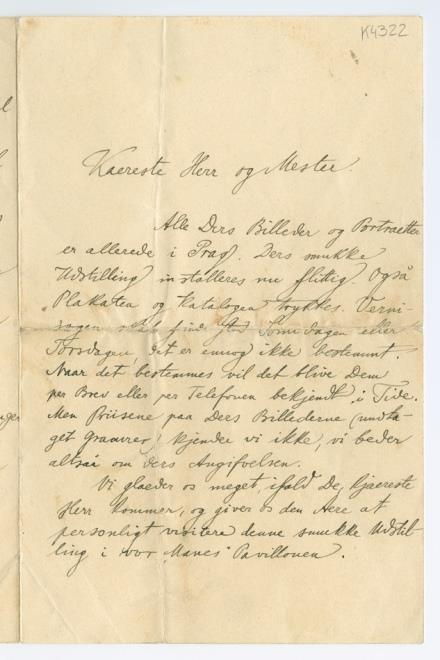 K4322
Kaereste Herr og Mester.
Alle Ders Billeder og Portraetter
er allerede i Prag. Ders smukke
Udstilling installeres nu flittig. Også
Plakaten og Katalogen trykkes. Verni-
sagen skal find sted Sonndagen eller
Torsdagen, det er ennog ikke bestemmt.
Naar det bestemmes vil det blive Dem
per Brev eller per Telefonen bekjendt i Tide.
Men Priisene paa Ders Billederne (undta-
get Gravurer) kjender vi ikke, vi beder
altsaa om ders Angifvelsen.
Vi glaeder os meget, ifald De, kjaereste
Herr kommer, og giver os den Aere at
personligt visitera denne smukke Udstil-
ling i vor "Manes" Pavillonen.